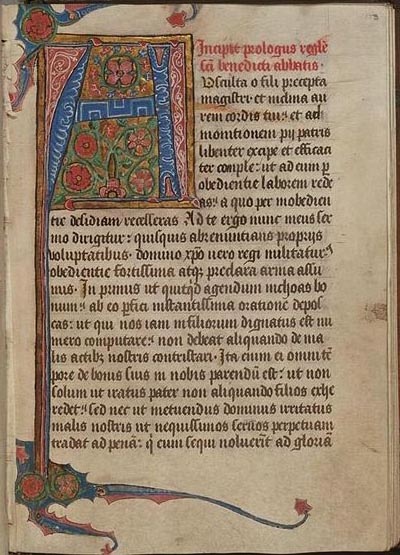 Incipit prologus regle
sci benedicti abbatis·
Usculta o fili precepta
magistri· et inclina au
rem cordis tui· et ad
monitionem pij patris
libenter excipe et efficaci
ter comple· ut ad eum p
obedientie laborem rede
as· a quo per inobedien
tie desidiam recesseras Ad te ergo nunc meus ser
mo dirigitur· quisquis abrenuntians proprijs
voluptatibus· domino xpo vero regi militatur9
obedientie fortissima atq preclara arma assu
mis· In primis ut quitqd agendum inchoas bo
num· ab eo pfici instantissima oratione depos
cas· ut qui nos iam in filiorum dignatus est nu
mero computare· non debeat aliquando de ma
lis actibz nostris contristari· Ita enim ei omni te
pore de bonis suis in nobis parendu est· ut non
solum ut iratus pater non aliquando filios exhe
redet· sed nec ut metuendus dominus irritatus
malis nostris ut nequissimos servos perpetuam
tradat ad pena· q eum sequi noluerit ad gloria